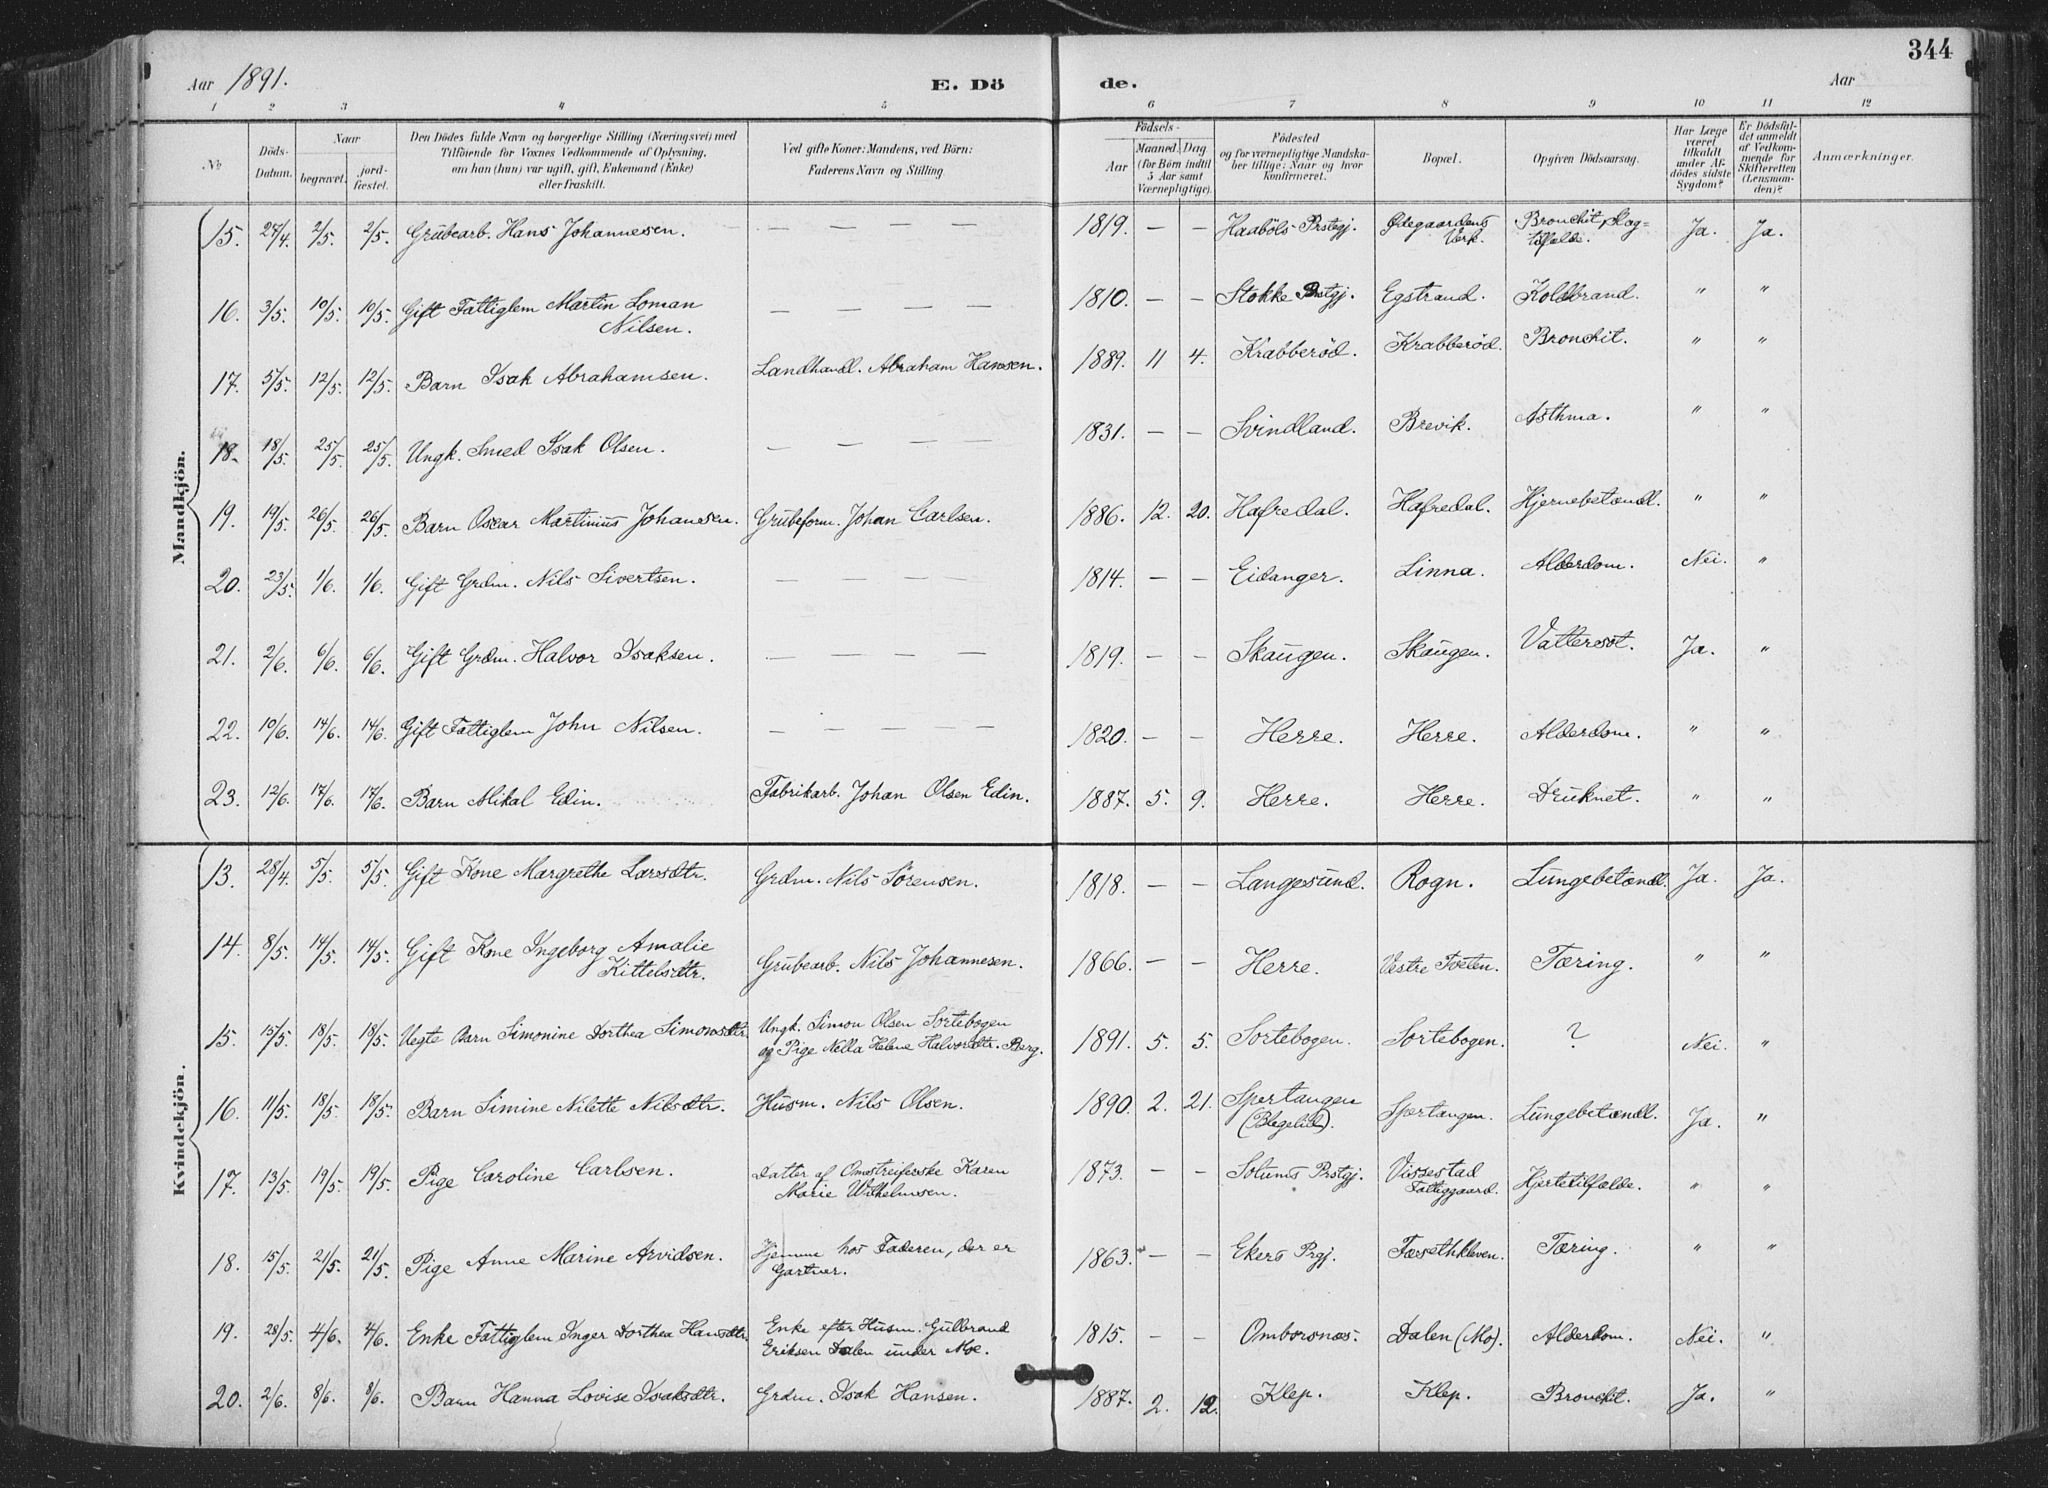 344
Aar 1891.
E. Dö
de.
Aar
1 2 3 4 5 6 7 8 9 10 11 12
No
Döds-Datum.
Naar
begravet.
jord-fæstet.
Den Dödes fulde Navn og borgerlige Stilling (Næringsvei) med
Tilföiende for Voxnes Vedkommende af Oplysning,
om han (hun) var ugift, gift, Enkemand (Enke)
eller fraskilt.
Ved gifte Koner: Mandens, ved Börn:
Faderens Navn og Stilling
Födsels-
Aar
Maaned. Dag
(for Börn indtil
5 Aar samt
Værnepligtige).
Födested
og for værnepligtige Mandska-
ber tillige: Naar og hvor
Konfirmeret.
Bopæl.
Opgiven Dödsaarsag.
Har Læge
været
tilkaldt
under Af-
dödes sidste
Sygdom?
Er Dödsfal-
det anmeldt
af Vedkom-
mende for
Skifteretten
(Lensman-
den)?
Anmærkninger.
Mandkjön.
15. 27/4. 2/5. 2/5. Grubearb. Hans Johannesen. — — — — 1819. — — Haaböls Prstgj. Ødegaardens Værk. Bronchit, Slag-tilfælde. Ja. Ja.
16. 3/5. 10/5. 10/5. Gift Fattiglem Martin Loman
Nilsen. — — — — 1810. — — Stokke Prstgj. Egstrand. Koldbrand. " "
17. 5/5. 12/5. 12/5. Barn Isak Abrahamsen. Landhandl. Abraham Hansen. 1889. 11 4. Krabberød. Krabberød. Bronchit. " "
18. 18/5. 25/5. 25/5. Ungk. Smed Isak Olsen. — — — — 1831. — — Svindland. Brevik. Asthma. " "
19. 19/5. 26/5. 26/5. Barn Oscar Martinius Johansen. Grubeform. Johan Carlsen. 1886. 12. 20. Hafredal. Hafredal. Hjernebetændl. " "
20. 23/5. 1/6. 1/6. Gift Grdm. Nils Sivertsen. — — — 1814. — — Eidanger. Linna. Alderdom. Nei. "
21. 2/6. 6/6. 6/6. Gift Grdm. Halvor Isaksen. — — — — 1819. — — Skaugen. Skaugen. Vattersot. Ja. "
22. 10/6. 14/6. 14/6. Gift Fattiglem John Nilsen. — — — — 1820. — — Herre. Herre. Alderdom. " "
23. 12/6. 17/6. 17/6. Barn Mikal Edin. Fabrikarb. Johan Olsen Edin. 1887. 5. 9. Herre. Herre. Druknet. " "
Kvindekjön.
13. 28/4. 5/5. 5/5. Gift Kone Margrethe Larsdtr. Grdm. Nils Sörensen. 1818. — — Langesund. Rogn. Lungebetændl. Ja. Ja.
14. 8/5. 14/5. 14/5. Gift Kone Ingeborg Amalie
Kittelsdtr. Grubearb. Nils Johannesen. 1866. — — Herre. Vestre Tveten. Tæring. " "
15. 15/5. 18/5. 18/5. Uegte Barn Simonine Dorthea Simonsdtr. Ungk. Simon Olsen Sortebogen
og Pige Nella Helene Halvorsdtr. Berg. 1891. 5. 5. Sortebogen. Sortebogen. ? Nei. "
16. 11/5. 18/5. 18/5. Barn Simine Nilette Nilsdtr. Husm. Nils Olsen. 1890. 2. 21. Spertangen
(Blegelid). Spertangen. Lungebetændl. Ja. "
17. 13/5. 19/5. 19/5. Pige Caroline Carlsen. Datter af Omstreiferske Karen
Marie Wilhelmsen. 1873. — — Solums Prstgj. Vissestad
Fattiggaard. Hjertetilfælde. " "
18. 15/5. 21/5. 21/5. Pige Anne Marine Arvidsen. Hjemme hos Faderen, der er
Gartner. 1863. — — Ekers Prgj. Færsethkleven. Tæring. " "
19. 28/5. 4/6. 4/6. Enke Fattiglem Inger Dorthea Hansdtr. Enke efter Husm. Gulbrand
Eriksen Dalen under Moe. 1815. — — Omborsnæs. Dalen (Mo). Alderdom. Nei. "
20. 2/6. 8/6. 8/6. Barn Hanna Lovise Isaksdtr. Grdm. Isak Hansen. 1887. 2. 12. Klep. Klep. Bronchit. Ja. "